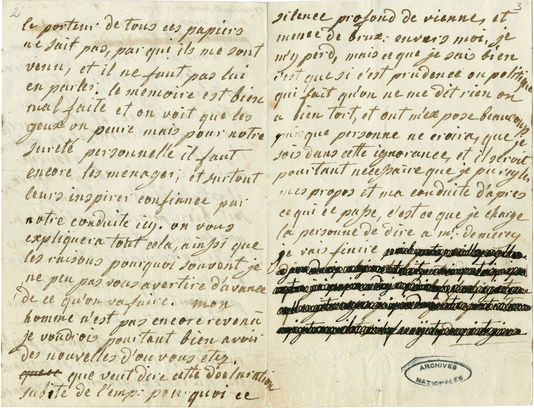 2
le porteur de tous ces papiers
ne sait pas, par qui ils me sont
venu, et il ne faut pas lui
en parler. le mémoire est bien
mal faite et on voit que les
geux on peure mais pour notre
sureté personnelle il faut
encore les menager, et surtout
leurs inspirer confiance par
notre conduite icy. on vous
expliquera tout cela, ainsi que
les raisons pourquoi souvent je
ne peu pas vous avertire d'avance
de ce qu'on va faire. mon
homme n'est pas encore revenu
je voudrois pourtant bien avoir
des nouvelles d'ou vous êtes.
que veut dire cette déclaration
subite de l'emp: pourquoi ce
3
silence profond de vienne, et
même de brux: envers moi, je
m'y perd, mais ce que je sais bien
c'est que si c'est prudence ou politique
qui fait qu'on ne me dit rien on
a bien tort, et ont m'expose beaucoup
puis que personne ne croira, que je
sois dans cette ignorance, et il seroit
pourtant nécessaire que je puisse régler
mes propos et ma conduite d'après
ce qui ce passe, c'est ce que je charge
la personne de dire a mr: de mercy
je vais finire
ARCHIVES
NATIONALES